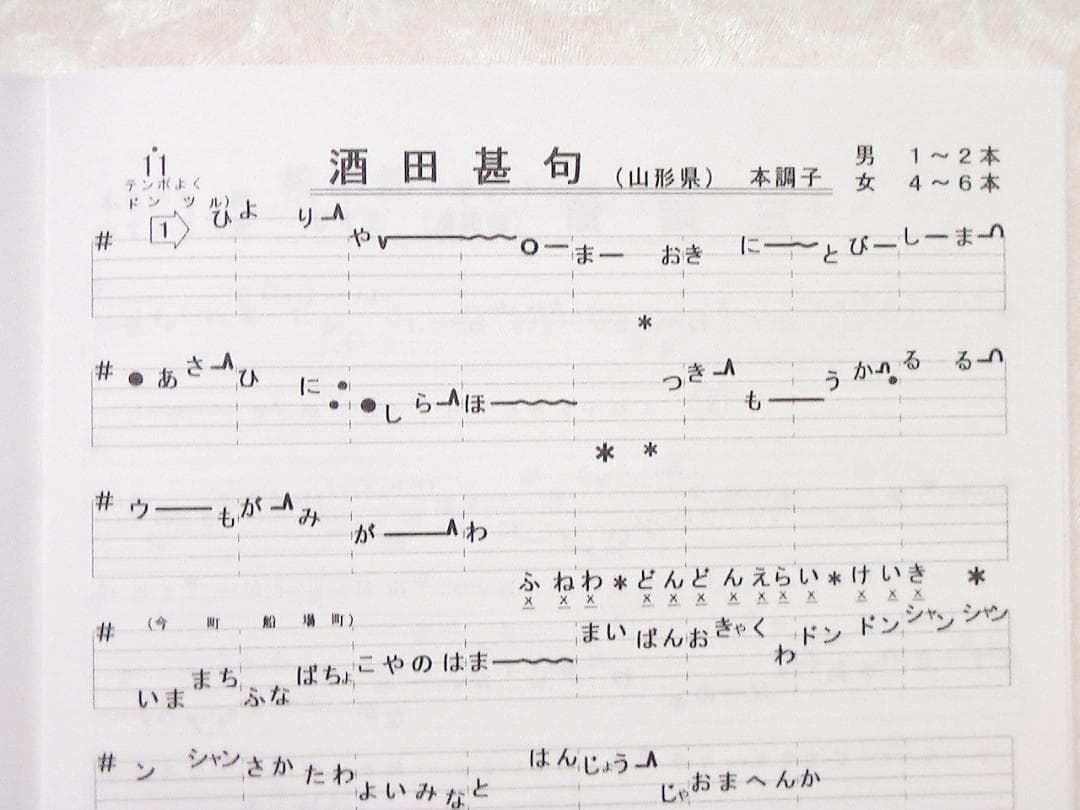 11
酒田甚句 (山形県) 本調子
男 1~2本
女 4~6本
テンポよく
ドン ツル)
1
# ひより や ま おき に と び し ま
# あさひ に しらほ つき も うかるる
# ウ もがみ がわ
ふねわ * どんどんえらい * けいき *
(今町船場町)
# いままちふなばちょこやのはま まいばんおきゃくわドン ドンシャンシャン
# ン シャンさかたわよいみなと はんじょうじゃおまへんか